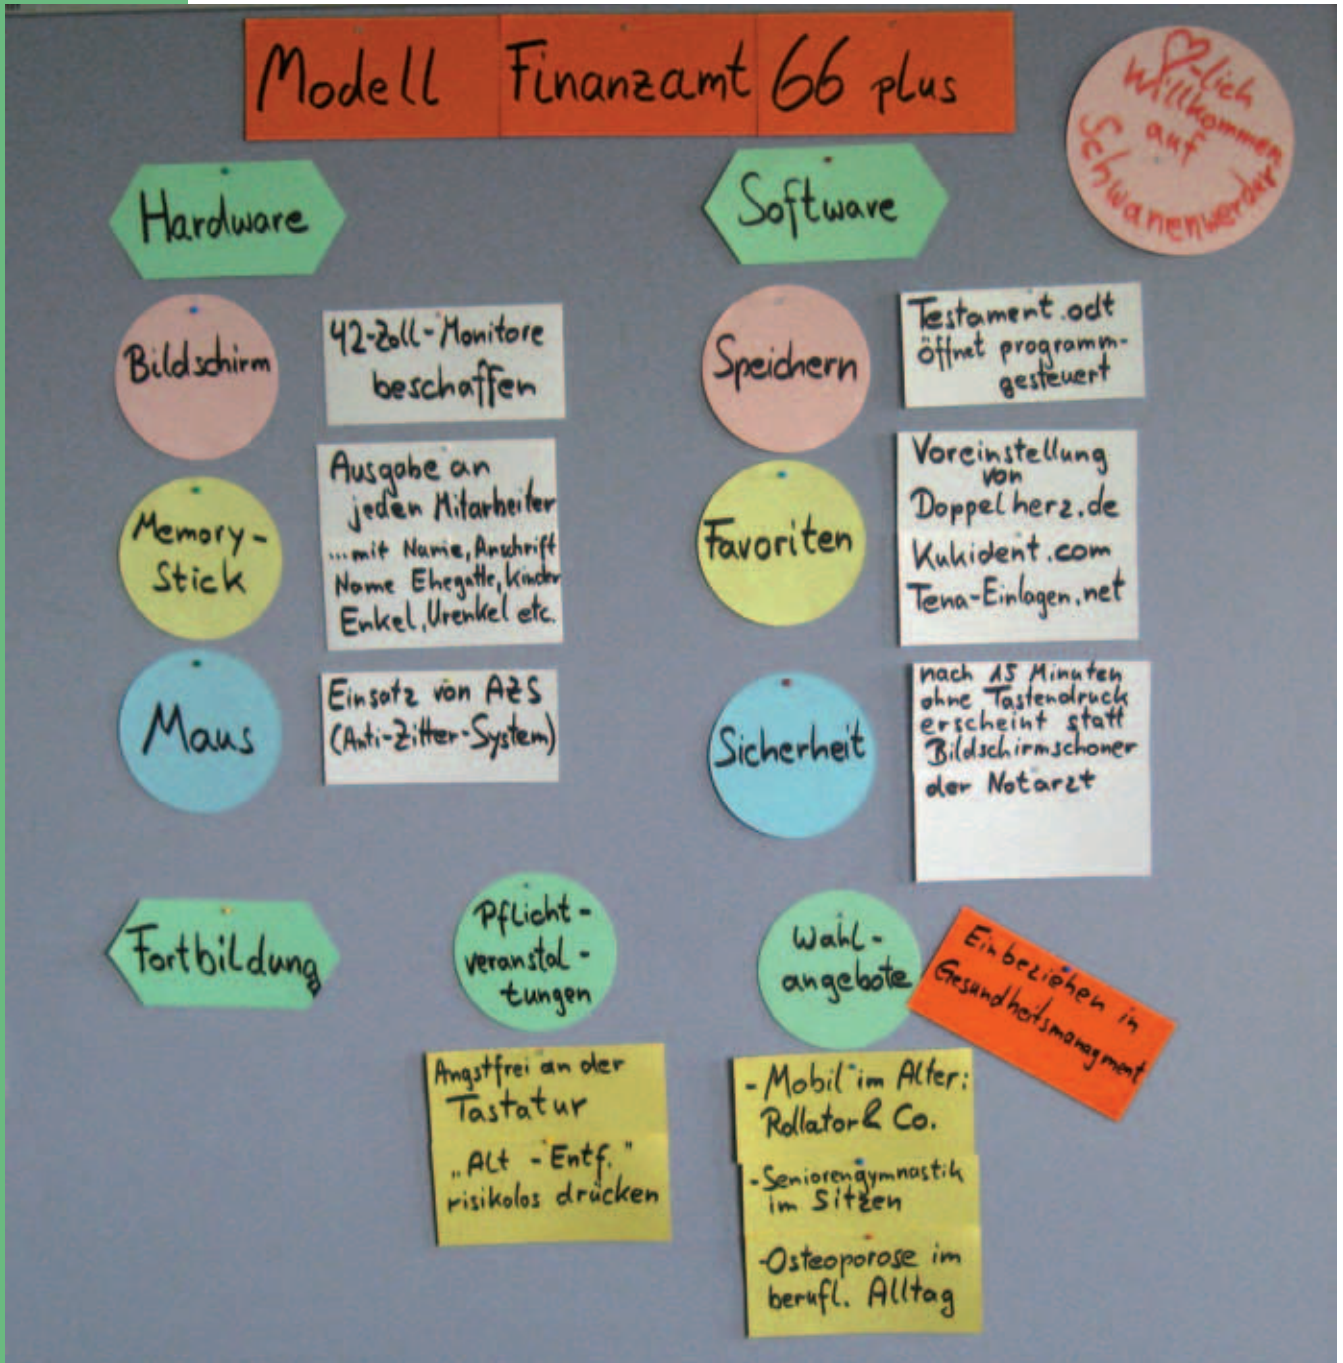 Modell Finanzamt 66 plus
♡-lich
Willkommen
auf
Schwanenwerder
Hardware
Bildschirm
42-Zoll-Monitore
beschaffen
Memory-
Stick
Ausgabe an
jeden Mitarbeiter
...mit Name, Anschrift
Name Ehegatte, Kinder
Enkel, Urenkel etc.
Maus
Einsatz von AZS
(Anti-Zitter-System)
Software
Speichern
Testament.odt
öffnet programm-
gesteuert
Favoriten
Voreinstellung
von
Doppelherz.de
Kukident.com
Tena-Einlagen.net
Sicherheit
nach 15 Minuten
ohne Tastendruck
erscheint statt
Bildschirmschoner
der Notarzt
Fortbildung
Pflicht-
veranstal-
tungen
Angstfrei an der
Tastatur
„Alt - Entf."
risikolos drücken
Wahl-
angebote
Einbeziehen in
Gesundheitsmanagment
- Mobil im Alter:
Rollator & Co.
- Seniorengymnastik
im Sitzen
- Osteoporose im
berufl. Alltag